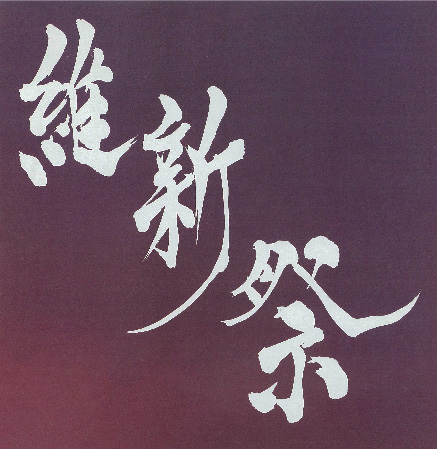 維新祭